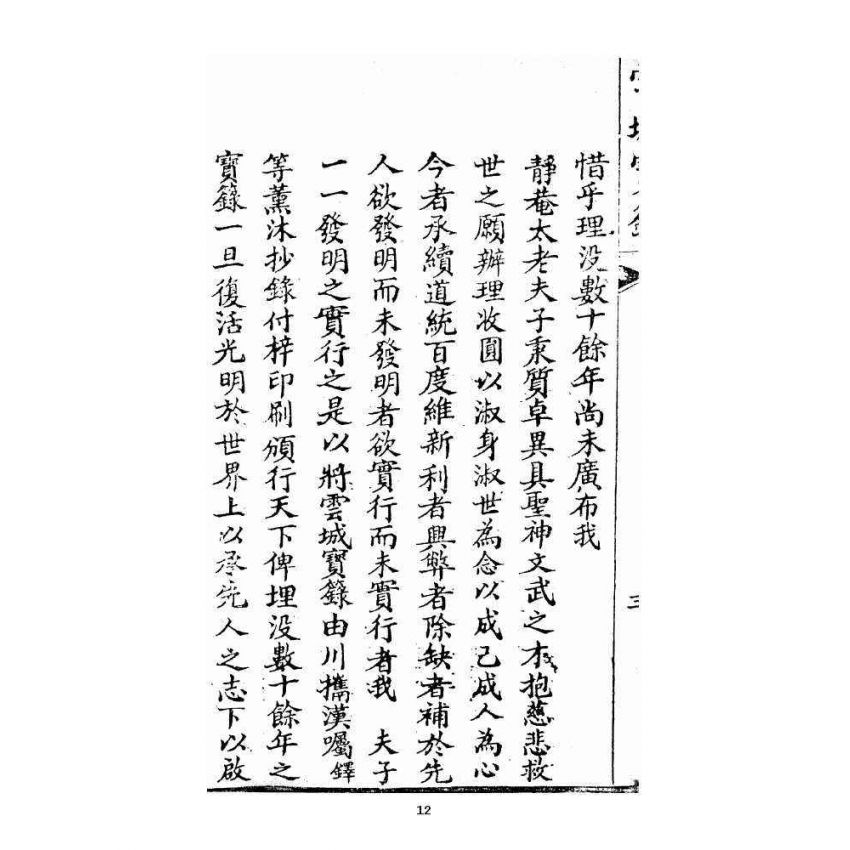 惜乎理没數十餘年尚未廣布我
靜菴太老夫子秉質卓異具聖神文武之才抱慈悲救
世之願辦理收圓以淑身淑世為念以成己成人為心
今者承續道統百度維新利者興弊者除缺者補於先
人欲發明而未發明者欲實行而未實行者我 夫子
一一發明之實行之是以將雲城寶籙由川攜漢囑鐸
等薰沐抄錄付梓印刷頒行天下俾埋没數十餘年之
寶籙一旦復活光明於世界上以承先人之志下以啟
三
12